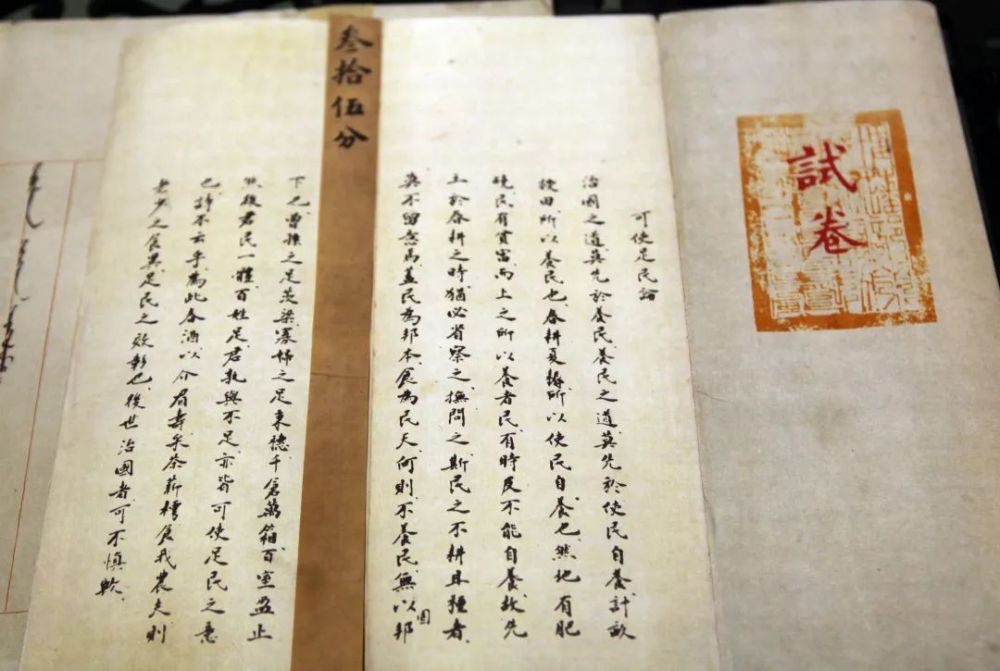 試卷
可使足民論
治國之道莫先於養民養民之道莫先於使民自養計畝
授田所以養民也春耕夏耨所以使民自養也然地有肥
磽民有貧富而上之所以養者民有時及不能自養故先
王於春耕之時猶必省察之撫問之斯民之不耕且種者
莫不留意焉蓋民為邦本食為民天何則不養民無以固邦
叁拾伍分
下已曾孫之足茨梁寡婦之足東穗千倉萬箱百室盈止
然後君民一體百姓足君孰與不足亦皆可使足民之意
已詩不云乎為此春酒以介眉壽采荼薪樗食我農夫則
老少之食與足民之效彰已後世治國者可不慎歟